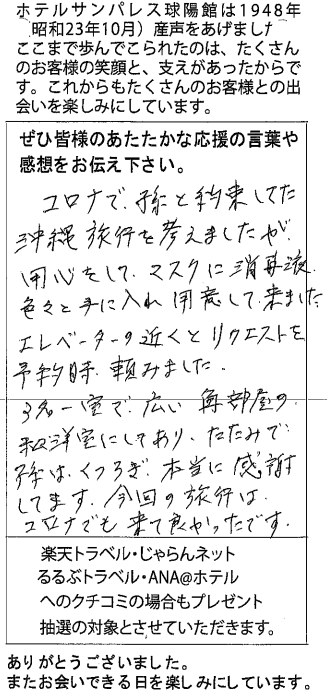 ホテルサンパレス球陽館は1948年
（昭和23年10月）産声をあげました
ここまで歩んでこられたのは、たくさん
のお客様の笑顔と、支えがあったからで
す。これからもたくさんのお客様との出
会いを楽しみにしています。
ぜひ皆様のあたたかな応援の言葉や
感想をお伝え下さい。
コロナで、孫と約束してた
沖縄旅行を考えましたが、
用心をして、マスクに消毒液、
色々と手に入れ用意して来ました。
エレベーターの近くとリクエストを
予約時、頼みました。
3名一室で、広い角部屋の
和洋室にしてあり、たたみで
孫は、くつろぎ、本当に感謝
してます。今回の旅行は、
コロナでも来て良かったです。
楽天トラベル・じゃらんネット
るるぶトラベル・ANA@ホテル
へのクチコミの場合もプレゼント
抽選の対象とさせていただきます。
ありがとうございました。
またお会いできる日を楽しみにしています。